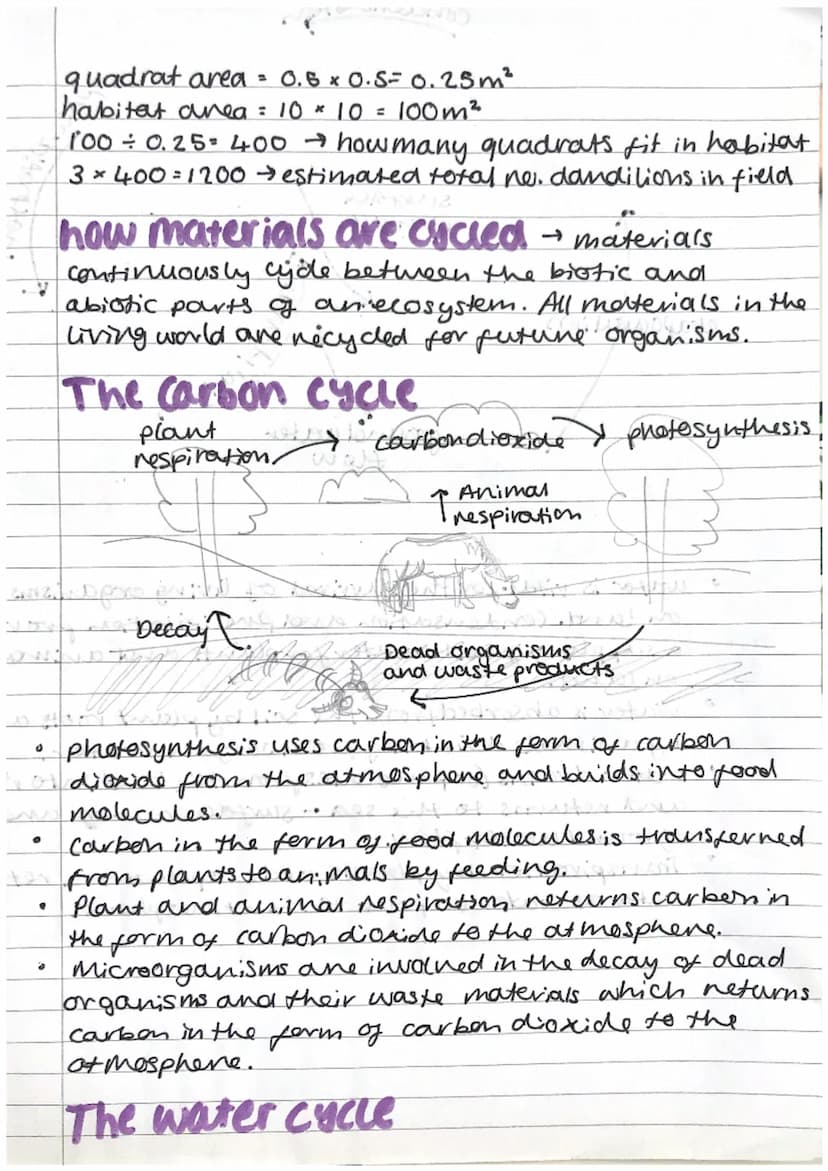 quadrat area = 0.5 × 0.5= 0.25m²
habitat area = 10 × 10 = 100m²
100 ÷ 0.25= 400 → how many quadrats fit in habitat
3 × 400 = 1200 → estimated total no. dandilions in field
how materials are cycled → materials
continuously cycle between the biotic and
abiotic parts of an ecosystem. All materials in the
living world are recycled for future organisms.
The Carbon cycle
plant
respiration → carbon dioxide → photosynthesis
↑ Animal
respiration
Decay
Dead organisms
and waste products
• photosynthesis uses carbon in the form of carbon
dioxide from the atmosphere and builds into food
molecules.
• Carbon in the form of food molecules is transferred
from plants to animals by feeding.
• Plant and animal respiration returns carbon in
the form of carbon dioxide to the atmosphere.
• Microorganisms are involved in the decay of dead
organisms and their waste materials which returns
carbon in the form of carbon dioxide to the
atmosphere.
The water cycle